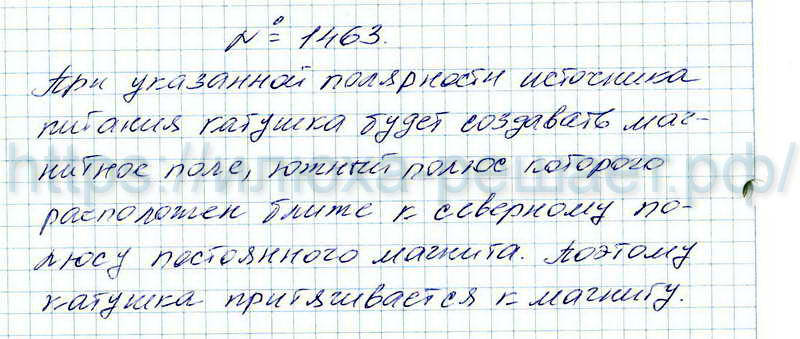 № 1463.
При указанной полярности источника
питания катушка будет создавать маг-
нитное поле, южный полюс которого
расположен ближе к северному по-
люсу постоянного магнита. Поэтому
катушка притягивается к магниту.